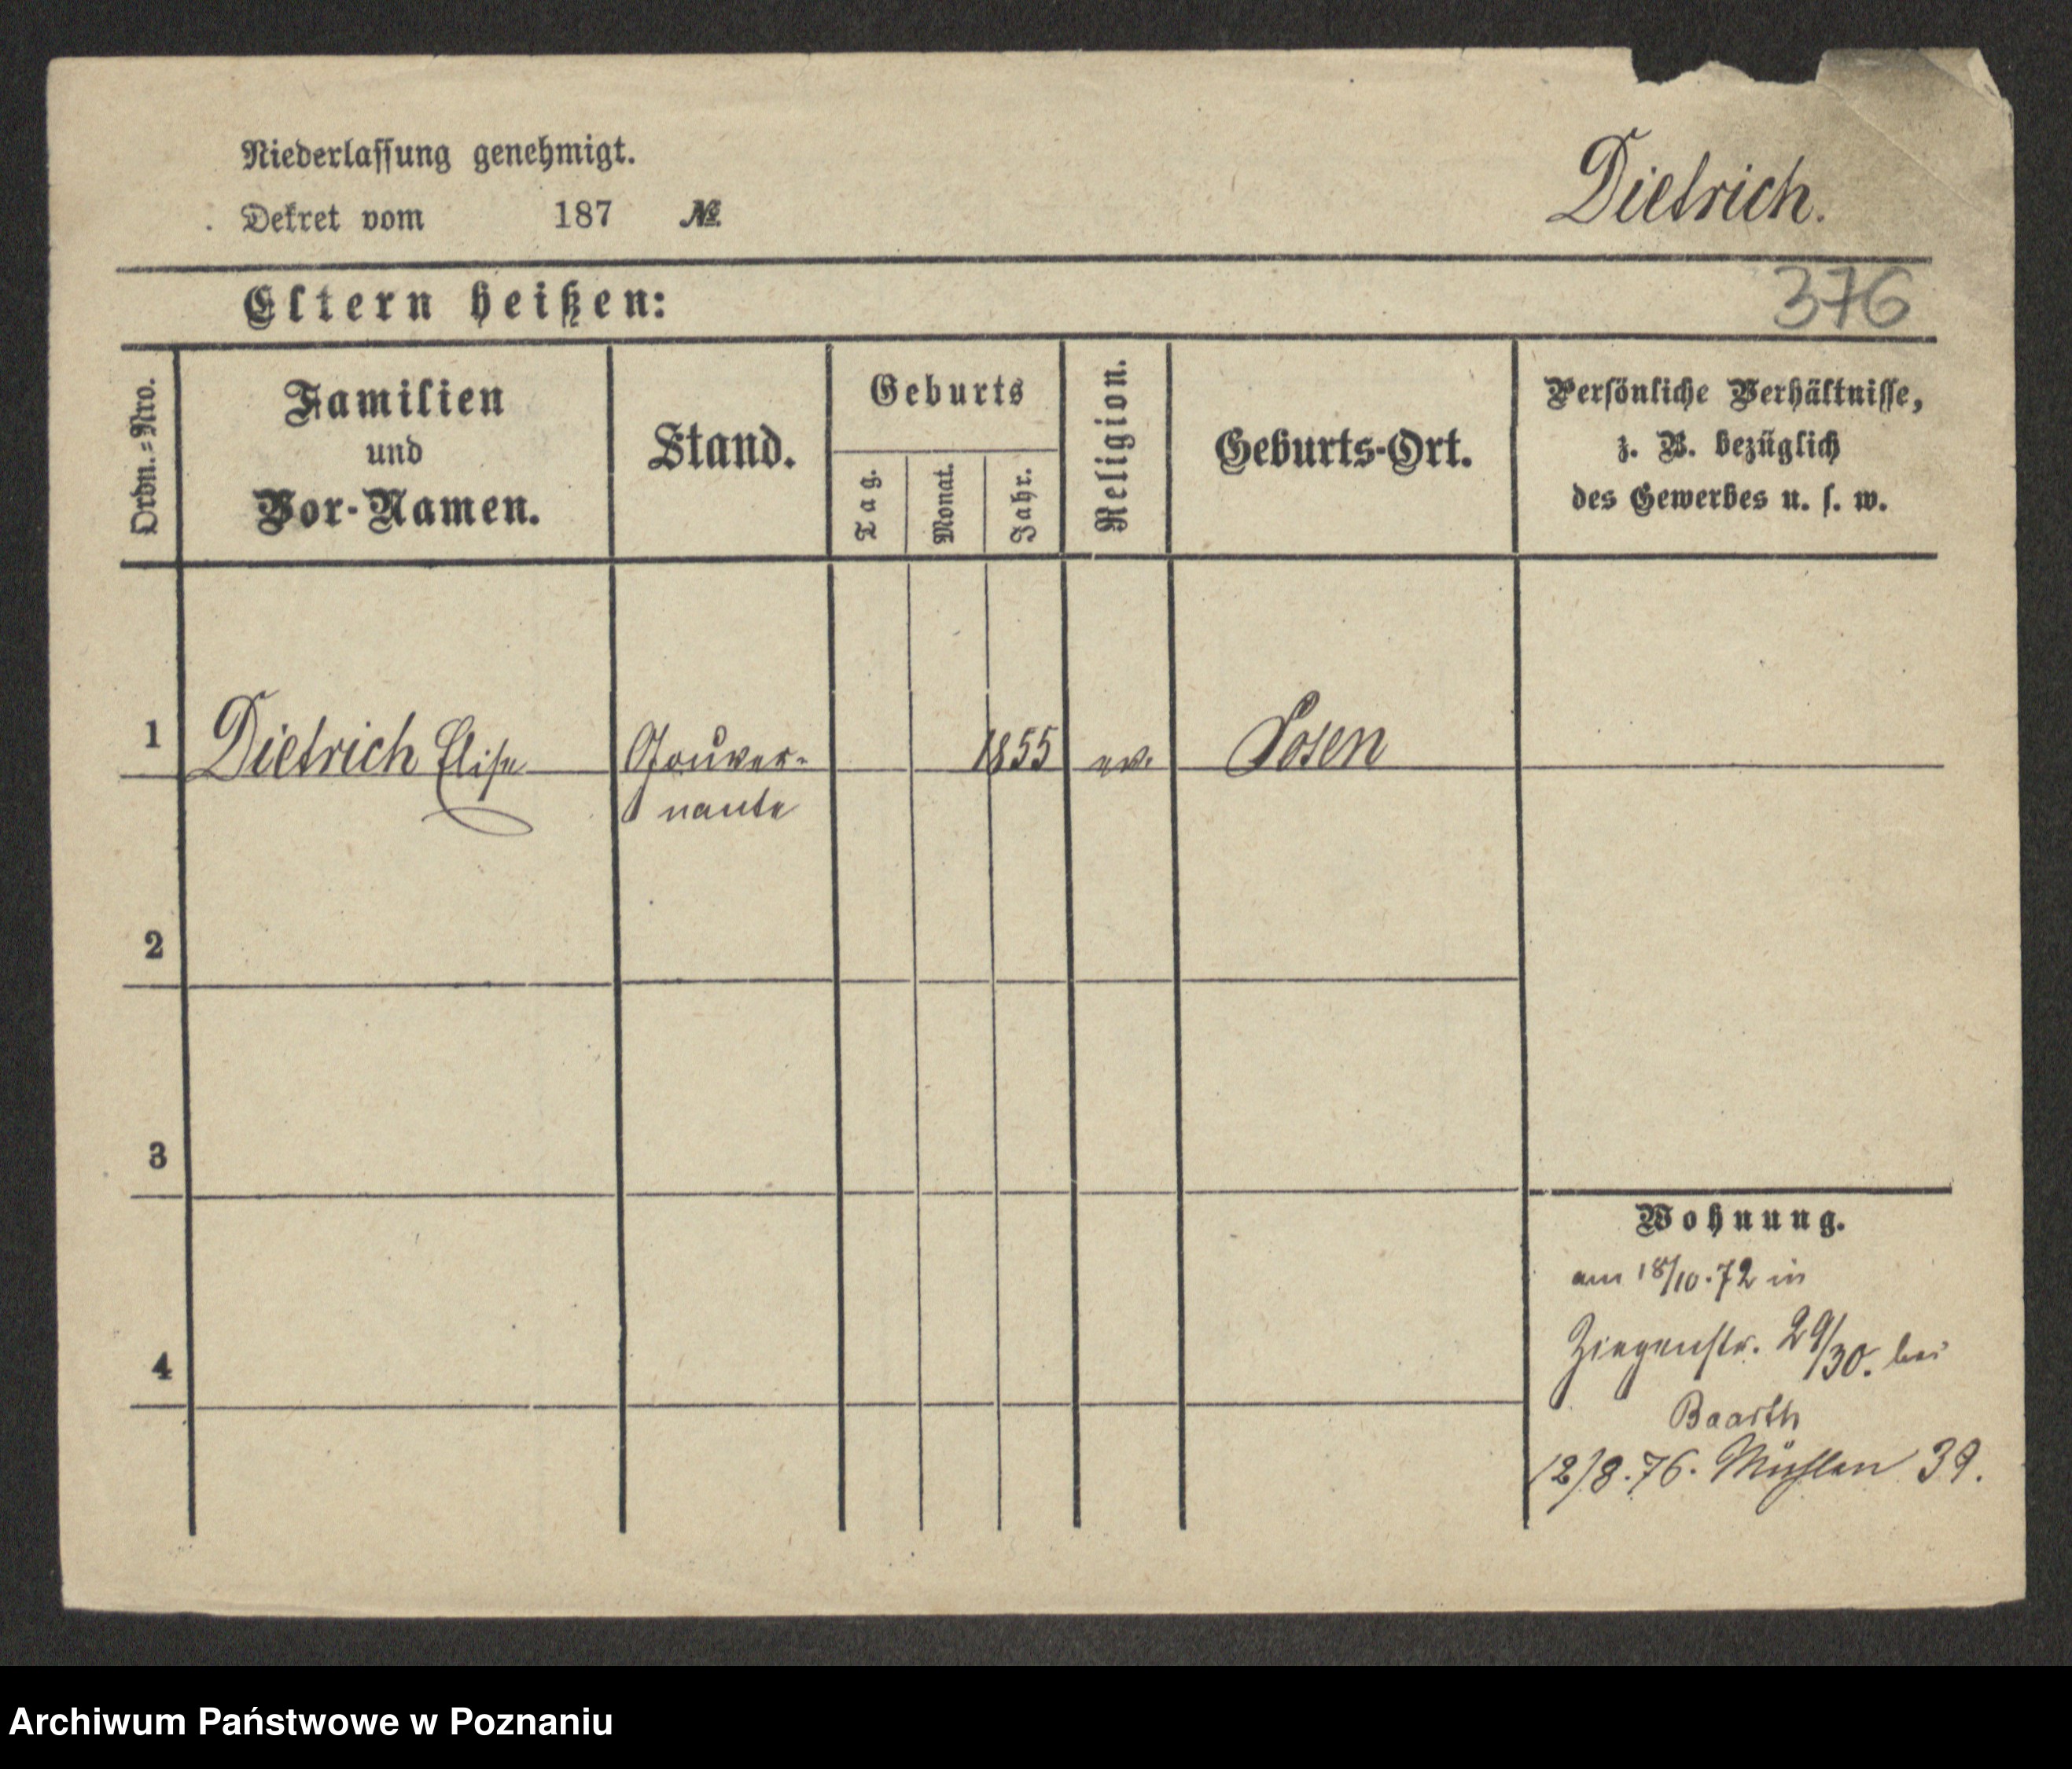 Niederlassung genehmigt.
Dekret vom 187 №
Dietrich.
Eltern heißen:
376
Ordn.=Nro.
Familien
und
Vor-Namen.
Stand.
Geburts
Tag.
Monat.
Jahr.
Religion.
Geburts-Ort.
Persönliche Verhältnisse,
z. B. bezüglich
des Gewerbes u. s. w.
1 Dietrich Elise Gouver- 1855 ev. Posen
nante
2
3
4
Wohnung.
am 18/10.72 in
Ziegenstr. 29/30. bei
Baarth
12/8.76. Mühlen 39.
Archiwum Państwowe w Poznaniu